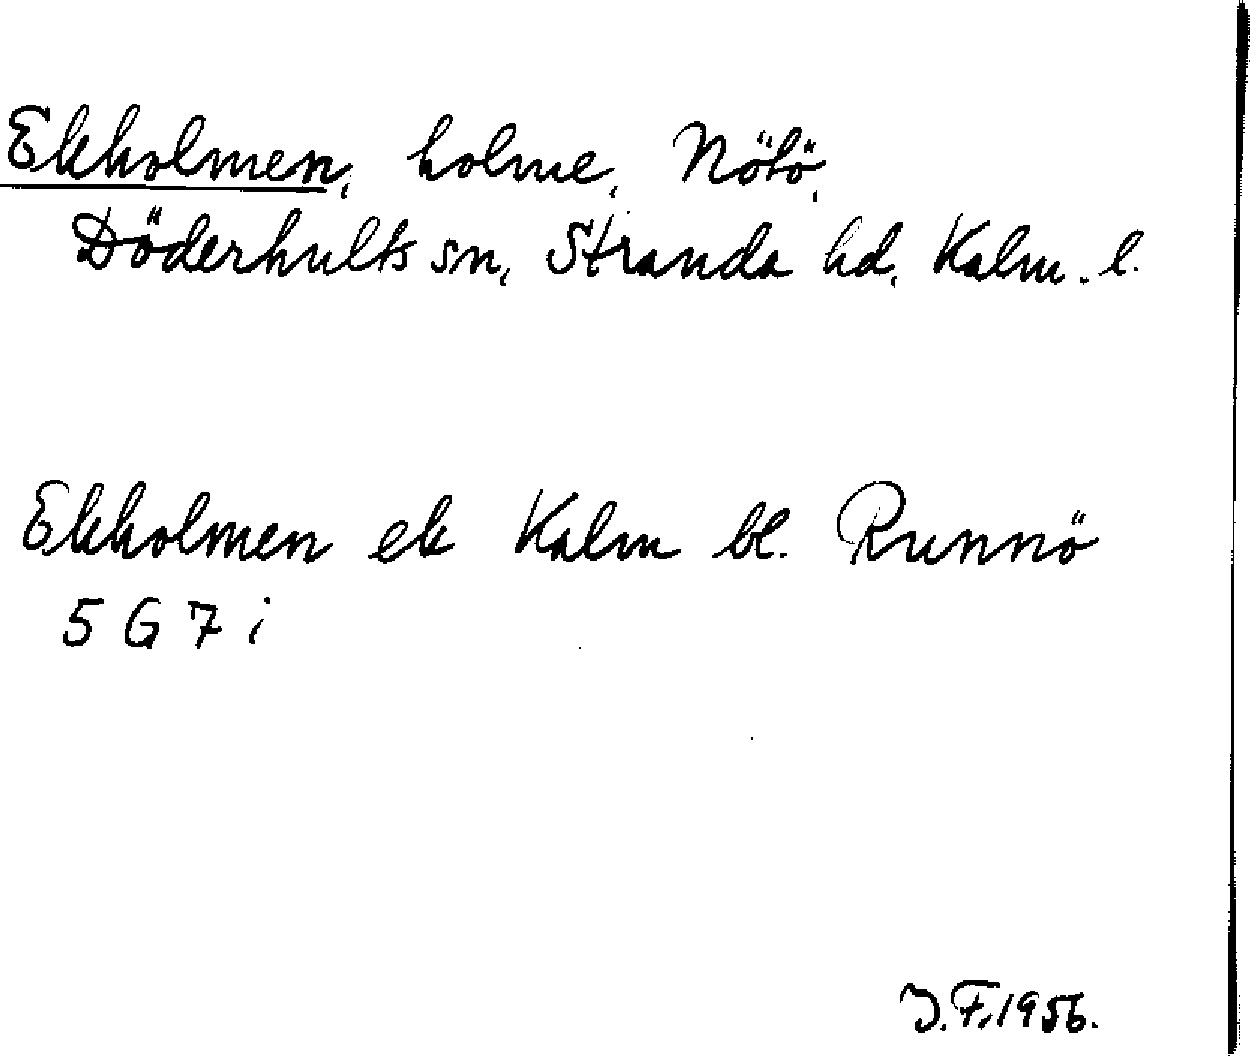 Ekholmen, holme, Nötö,
Döderhults sn, Stranda hd, Kalm. l.
Ekholmen ek Kalm bl. Runnö
5 G 7 i
J.F. 1956.